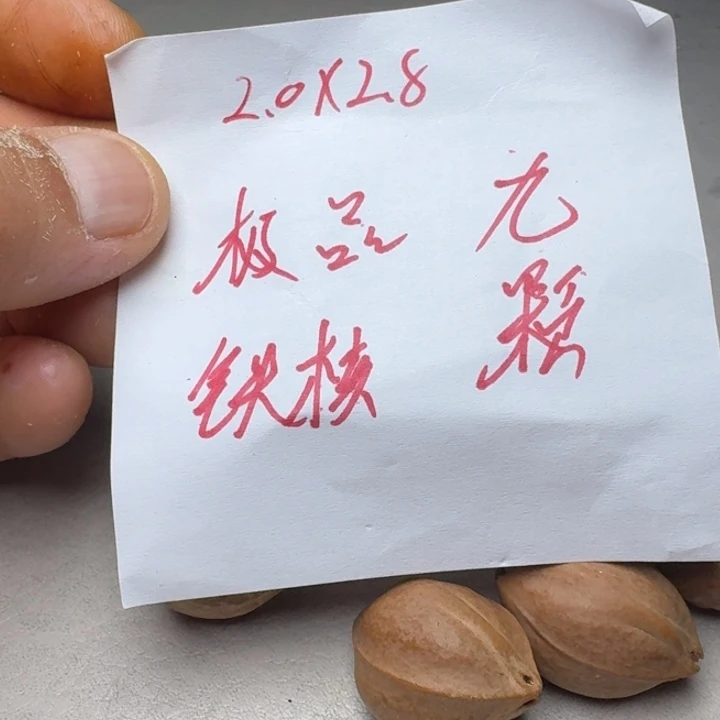 2.0X2.8
极品
铁核
九
颗